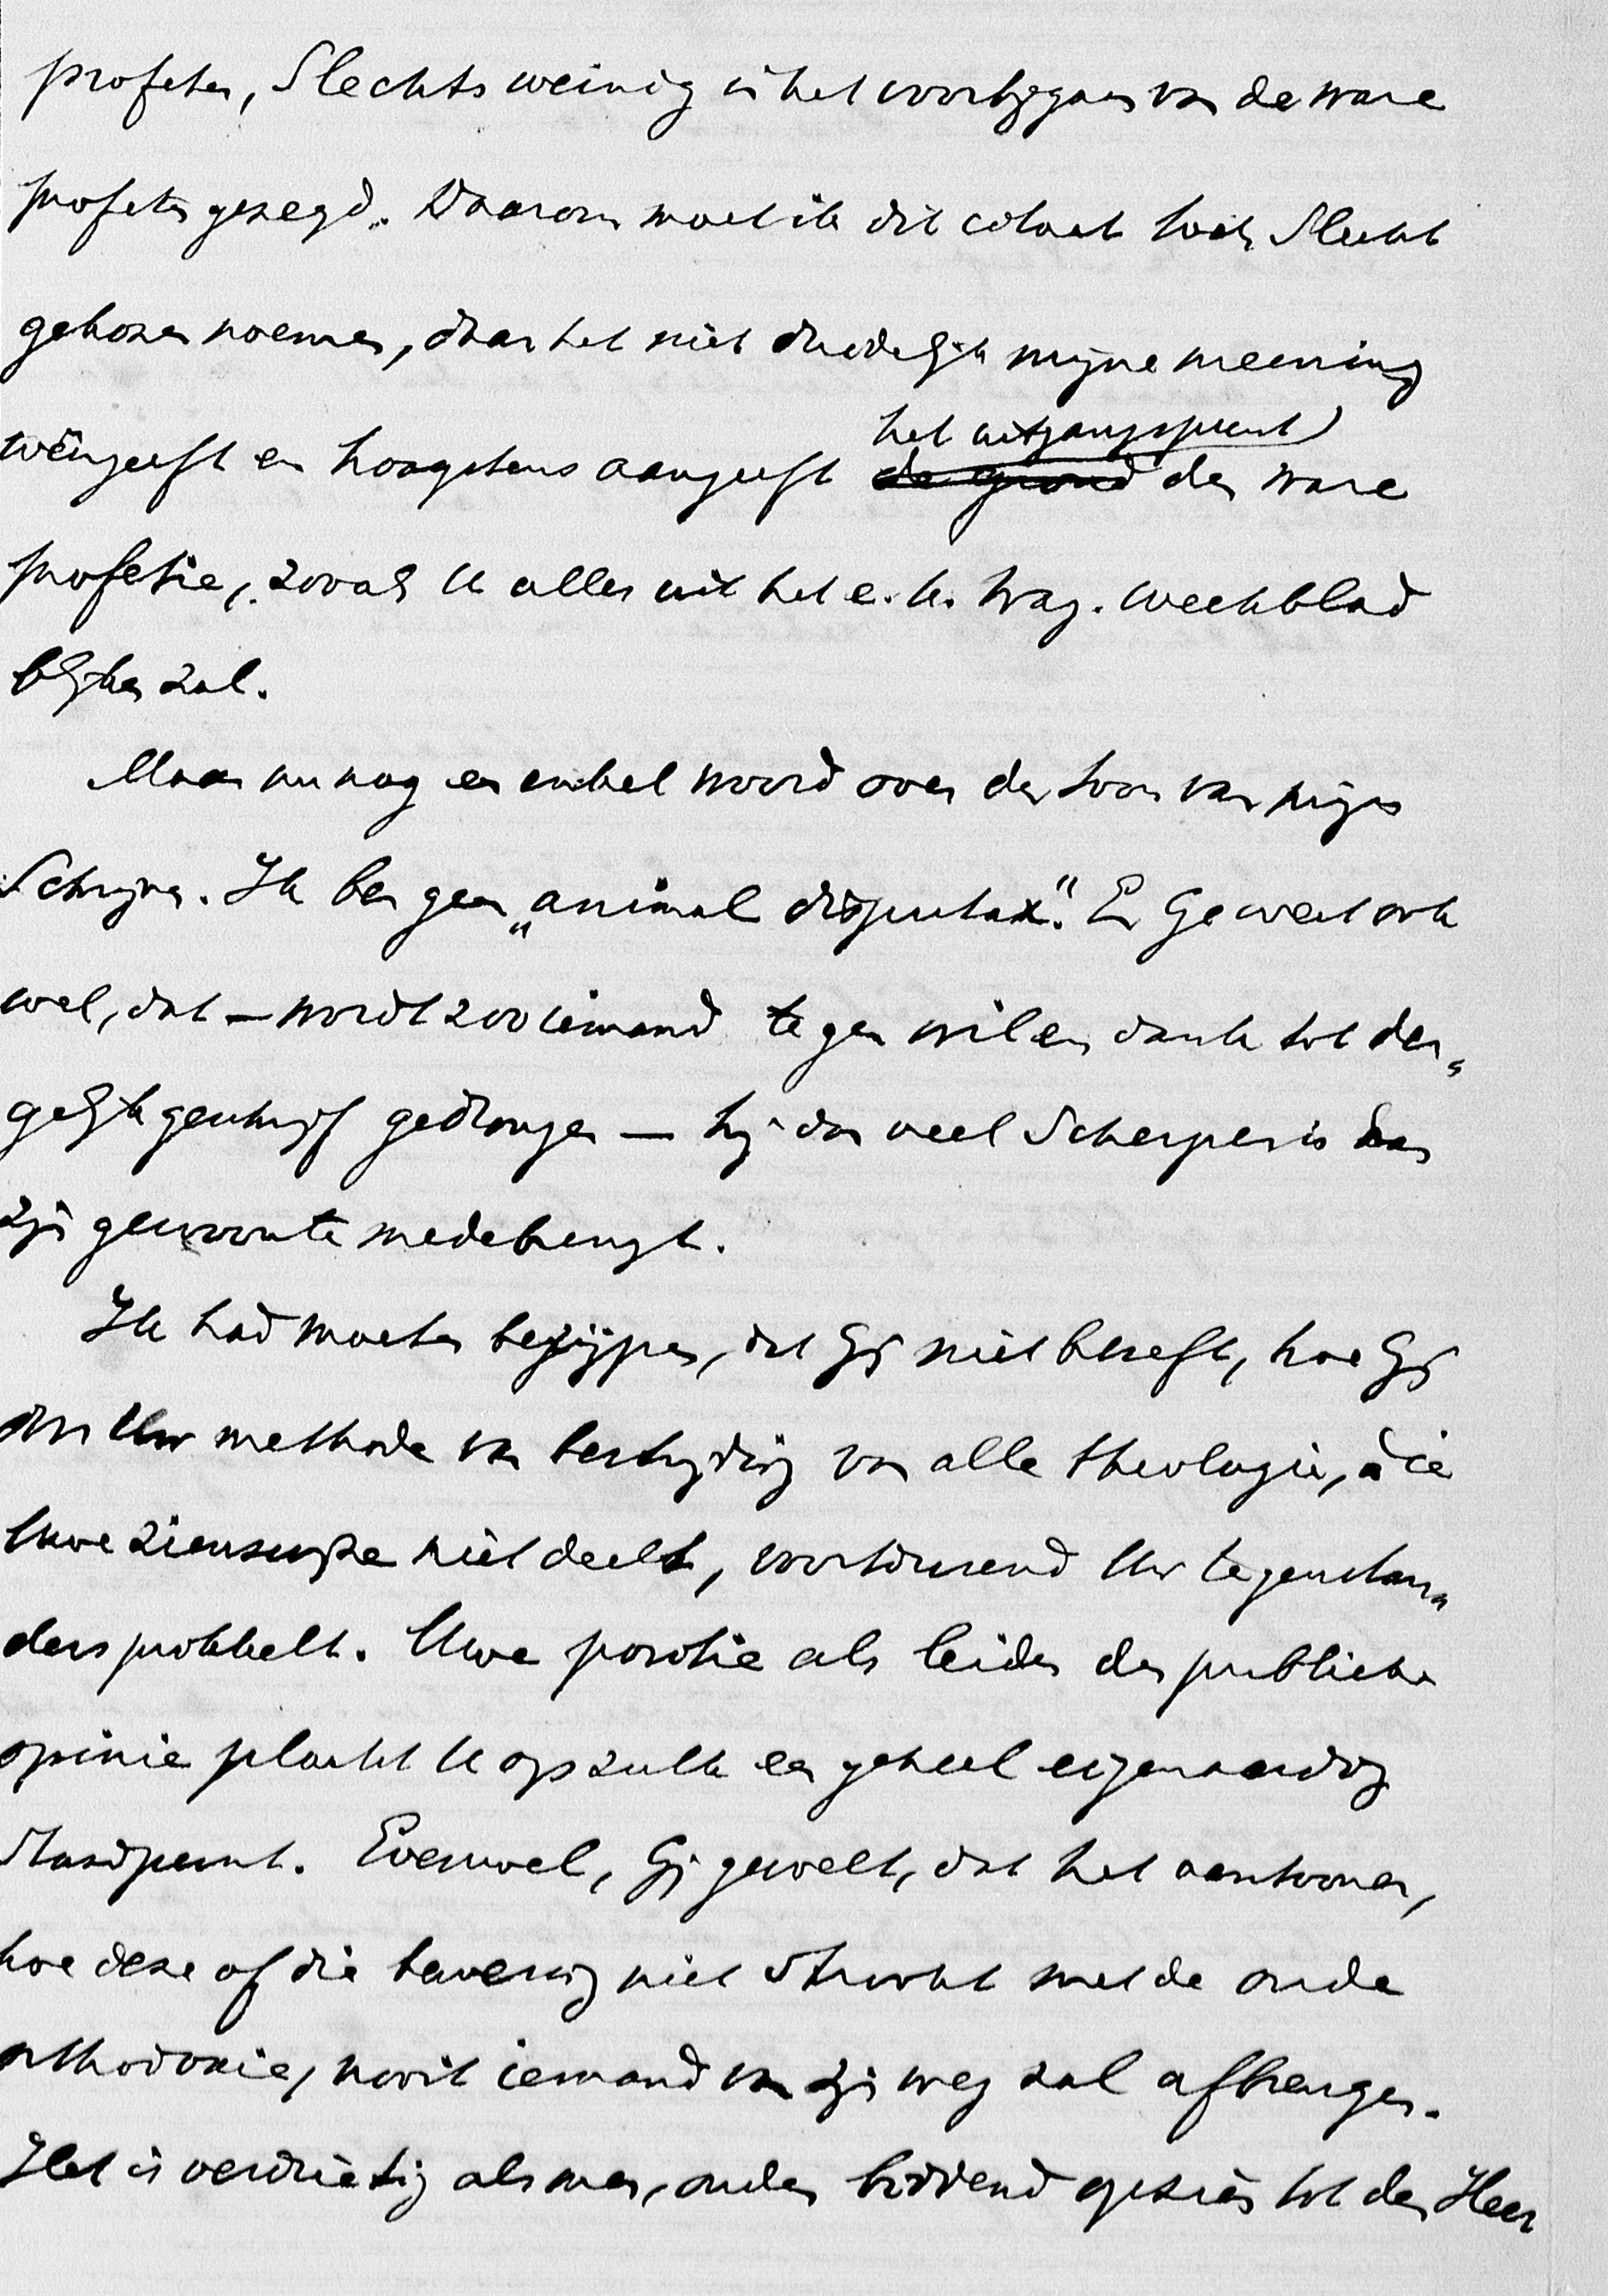 profeten, Slechts weinig is het voorbijgaan van de ware
profeten gezegd. Daarom moet ik dit citaat toch Slecht
gekozen noemen, daar het niet duidelijk mijne meening
weêrgeeft en hoogstens aangeeft het uitgangspunt) de grond der ware
profetie, zooals U alles uit het e.k. Haag. weekblad
blijken zal.
Maar nu nog een enkel woord over den toon van mijn
Schrijven. Ik ben geen „animal disputax". En Ge weet ook
wel, dat — wordt zoo iemand tegen wil en dank tot der„
gelijk geschrijf gedrongen — hij dan veel Scherper is dan
zijn gewoonte medebrengt.
Ik had moeten begrijpen, dat Gij niet beseft, hoe Gij
door Uw methode van bestrijding van alle theologie, die
Uwe zienswijze niet deelt, voortdurend Uw tegenstan„
ders prikkelt. Uwe positie als leider der publieke
opinie plaatst U op zulk een geheel eigenaardig
standpunt. Evenwel, Gij gevoelt, dat het aantoonen,
hoe deze of die bewering niet strookt met de oude
orthodoxie, nooit iemand van zijn weg zal afbrengen.
Het is verdrietig als men, onder biddend opzien tot den Heer